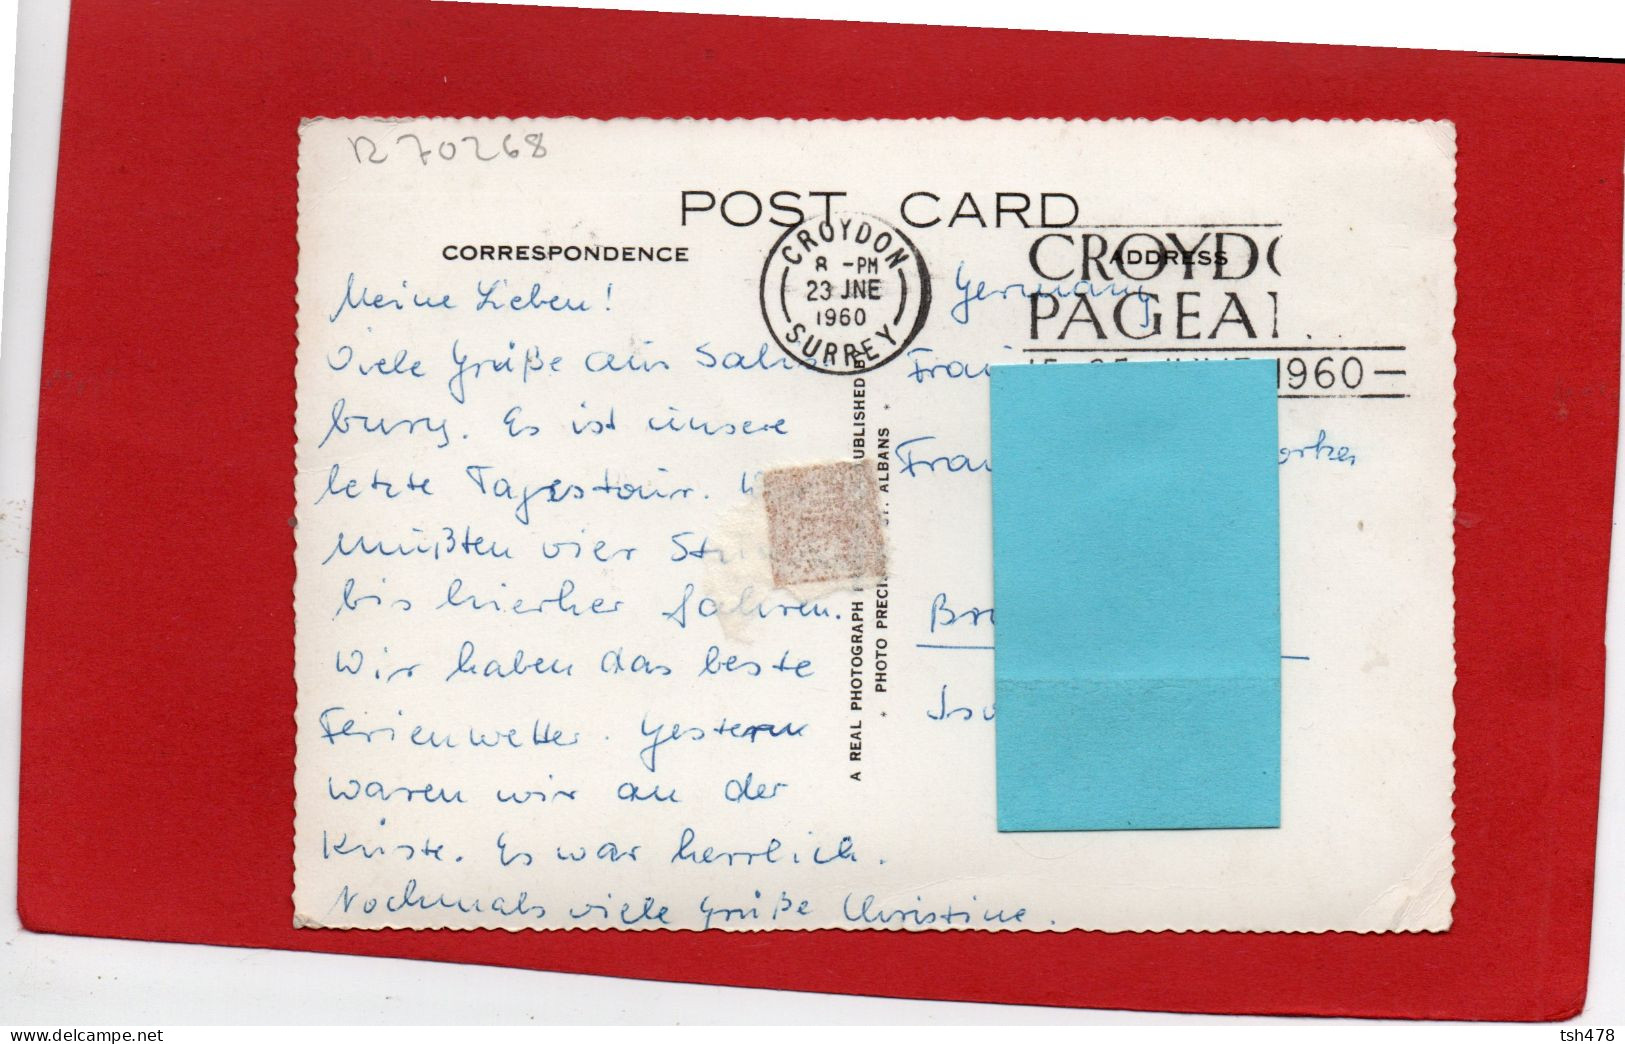 R 70268
POST CARD
CORRESPONDENCE
ADDRESS
CROYDON
8 -PM
23 JNE
1960
SURREY
CROYDO
PAGEAN
1960
Meine Lieben!
Viele Grüße aus Salis
burg. Es ist unsere
letzte Tagestour.
mußten vier
bis hierher fahren.
Wir haben das beste
Ferienwetter. Gestern
waren wir an der
Küste. Es war herrlich.
Nochmals viele Grüße Christine.
A REAL PHOTOGRAPH PUBLISHED BY
* PHOTO PRECIS ST. ALBANS *
Germany
Frau
Frau
tsh478